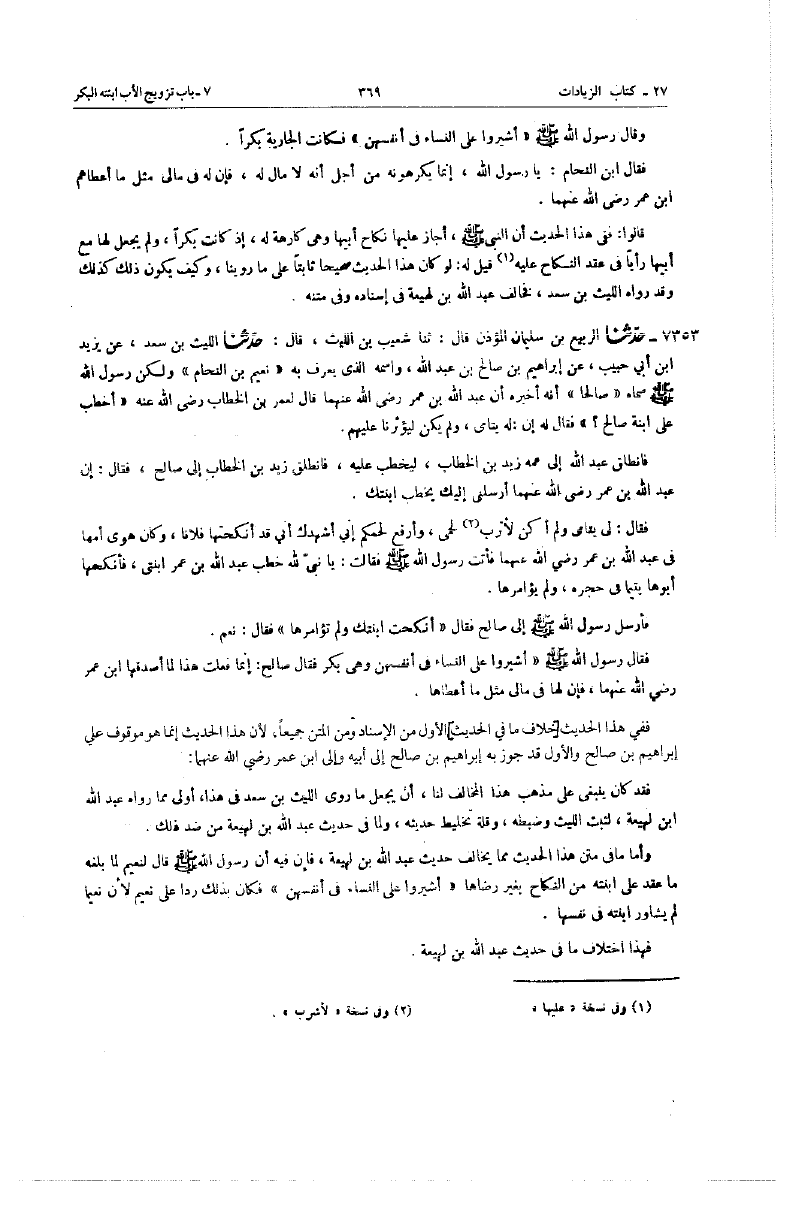 ٢٧ - كتاب الزيادات ٣٦٩ ٧ - باب تزويج الأب ابنته البكر
وقال رسول الله ﷺ « أشيروا على النساء فى أنفسهن » فكانت الجارية بكراً .
فقال ابن النحام : يا رسول الله ، إنما يكرهونه من أجل أنه لا مال له ، فإن له فى مالى مثل ما أعطاهم
ابن عمر رضى الله عنهما .
قالوا: ففى هذا الحديث أن النبى ﷺ ، أجاز عليها نكاح أبيها وهى كارهة له ، إذ كانت بكراً ، ولم يجعل لها مع
أبيها رأياً فى عقد النكاح عليه(١) قيل له: لو كان هذا الحديث صحيحا ثابتاً على ما روينا ، وكيف يكون ذلك كذلك
وقد رواه الليث بن سعد ، فخالف عبد الله بن لهيعة فى إسناده وفى متنه .
٧٣٥٣ - حدّثنا الربيع بن سليمان المؤذن قال : ثنا شعيب بن الليث ، قال : حدّثنا الليث بن سعد ، عن يزيد
ابن أبي حبيب ، عن إبراهيم بن صالح بن عبد الله ، واسمه الذى يعرف به « نعيم بن النحام » ولكن رسول الله
ﷺ سماه « صالحا » أنه أخبره أن عبد الله بن عمر رضى الله عنهما قال لعمر بن الخطاب رضى الله عنه « أخطب
على ابنة صالح ؟ » فقال له إن :له يتامى ، ولم يكن ليؤثرنا عليهم.
فانطلق عبد الله إلى عمه زيد بن الخطاب ، ليخطب عليه ، فانطلق زيد بن الخطاب إلى صالح ، فقال : إن
عبد الله بن عمر رضى الله عنهما أرسلنى إليك يخطب ابنتك .
فقال : لى يتامى ولم أكن لأترب(٢) لحمى ، وأرفع لحمكم إنى أشهدك أنى قد أنكحتها فلانا ، وكان هوى أمها
فى عبد الله بن عمر رضي الله عنهما فأتت رسول الله ﷺ فقالت : يا نبيّ لله خطب عبد الله بن عمر ابنتى ، فأنكحها
أبوها يتيما فى حجره ، ولم يؤامرها .
فأرسل رسول الله ﷺ إلى صالح فقال « أنكحت ابنتك ولم تؤامرها » فقال : نعم .
فقال رسول الله ﷺ « أشيروا على النساء فى أنفسهن وهى بكر فقال صالح: إنما فعلت هذا لما أصدقها ابن عمر
رضي الله عنهما ، فإن لها فى مالى مثل ما أعطاها .
ففي هذا الحديث [خلاف ما في الحديث] الأول من الإسناد ومن المتن جميعاً، لأن هذا الحديث إنما هو موقوف علي
إبراهيم بن صالح والأول قد جوز به إبراهيم بن صالح إلى أبيه وإلى ابن عمر رضي الله عنهما:
فقد كان ينبغى على مذهب هذا المخالف لنا ، أن يجعل ما روى الليث بن سعد فى هذا، أولى مما رواه عبد الله
ابن لهيعة ، لثبت الليث وضبطه ، وقلة تخليط حديثه ، ولما فى حديث عبد الله بن لهيعة من ضد ذلك .
وأما مافى متن هذا الحديث مما يخالف حديث عبد الله بن لهيعة ، فإن فيه أن رسول الله ﷺ قال لنعيم لما بلغه
ما عقد على ابنته من النكاح بغير رضاها « أشيروا على النساء فى أنفسهن » فكان بذلك ردا على نعيم لأن نعيما
لم يشاور ابنته فى نفسها .
فهذا اختلاف ما فى حديث عبد الله بن لهيعة .
(١) وفى نسخة « عليها » (٢) وفى نسخة « لأشرب » .